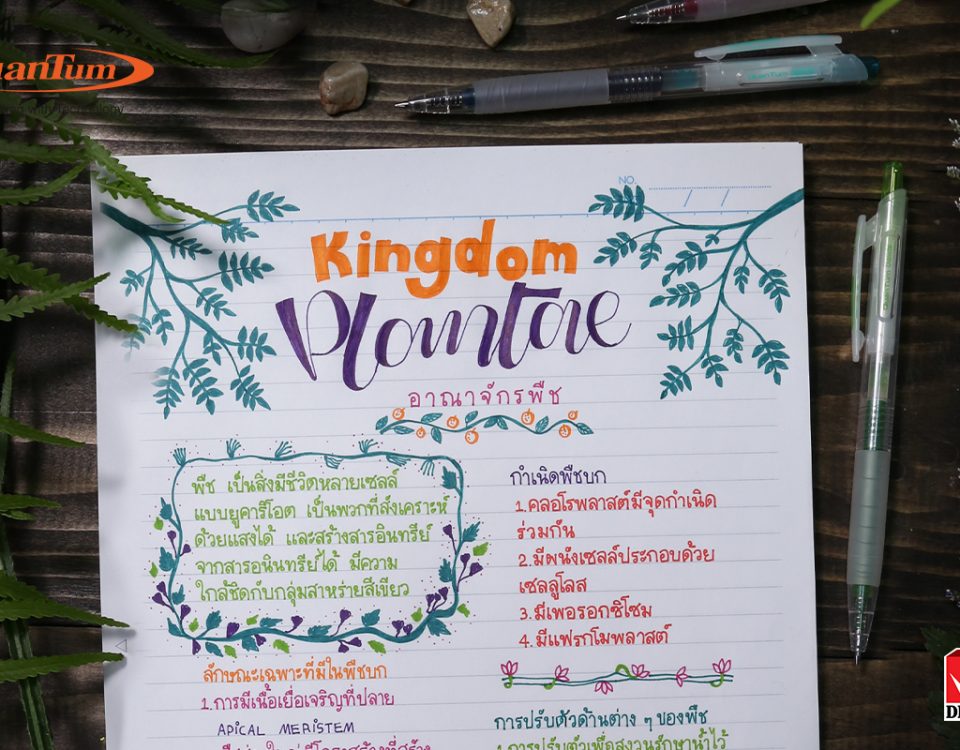 uanTum
NO.
Kingdom
Plantae
อาณาจักรพืช
พืช เป็นสิ่งมีชีวิตหลายเซลล์
แบบยูคาริโอต เป็นพวกที่สังเคราะห์
ด้วยแสงได้ และสร้างสารอินทรีย์
จากสารอนินทรีย์ได้ มีความ
ใกล้ชิดกับกลุ่มสาหร่ายสีเขียว
ลักษณะเฉพาะที่มีในพืชบก
1.การมีเนื้อเยื่อเจริญที่ปลาย
APICAL MERISTEM
กำเนิดพืชบก
1.คลอโรพลาสต์มีจุดกำเนิด
ร่วมกัน
2.มีผนังเซลล์ประกอบด้วย
เซลลูโลส
3.มีเพอรอกซิโซม
4.มีแฟรกโมพลาสต์
การปรับตัวด้านต่าง ๆ ของพืช
1.การปรับตัวเพื่อสงวนรักษาน้ำไว้
QuanTum